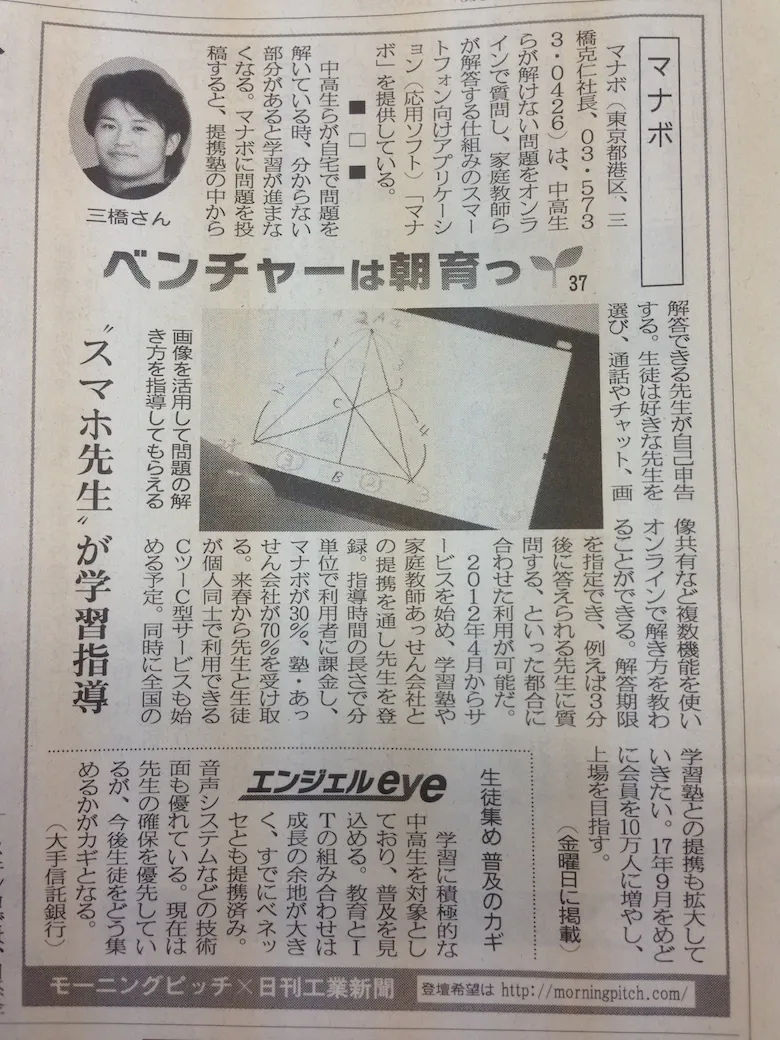 マナボ
マナボ（東京都港区、三
橋克仁社長、03・573
3・0426）は、中高生
らが解けない問題をオンラ
インで質問し、家庭教師ら
が解答する仕組みのスマー
トフォン向けアプリケーシ
ョン（応用ソフト）「マナ
ボ」を提供している。
■□■
中高生らが自宅で問題を
解いている時、分からない
部分があると学習が進まな
くなる。マナボに問題を投
稿すると、提携塾の中から
三橋さん
ベンチャーは朝育つ
37
解答できる先生が自己申告
する。生徒は好きな先生を
選び、通話やチャット、画
画像を活用して問題の解
き方を指導してもらえる
〝スマホ先生〟が学習指導
像共有など複数機能を使い
オンラインで解き方を教わ
ることができる。解答期限
を指定でき、例えば3分
後に答えられる先生に質
問する、といった都合に
合わせた利用が可能だ。
2012年4月からサ
ービスを始め、学習塾や
家庭教師あっせん会社と
の提携を通し先生を登
録。指導時間の長さで分
単位で利用者に課金し、
マナボが30％、塾・あっ
せん会社が70％を受け取
る。来春から先生と生徒
が個人同士で利用できる
CツーC型サービスも始
める予定。同時に全国の
学習塾との提携も拡大して
いきたい。17年9月をめど
に会員を10万人に増やし、
上場を目指す。
（金曜日に掲載）
エンジェルeye
生徒集め 普及のカギ
学習に積極的な
中高生を対象とし
ており、普及を見
込める。教育とI
Tの組み合わせは
成長の余地が大き
く、すでにベネッ
セとも提携済み。
音声システムなどの技術
面も優れている。現在は
先生の確保を優先してい
るが、今後生徒をどう集
めるかがカギとなる。
（大手信託銀行）
モーニングピッチ×日刊工業新聞
登壇希望は http://morningpitch.com/